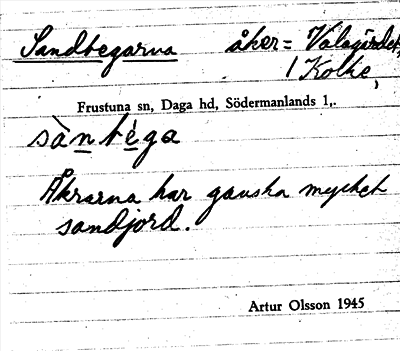 Sandtegarna åker = Valagärdet,
i Kolke,
Frustuna sn, Daga hd, Södermanlands l,.
sàntéga
Åkrarna har ganska mycket
sandjord.
Artur Olsson 1945